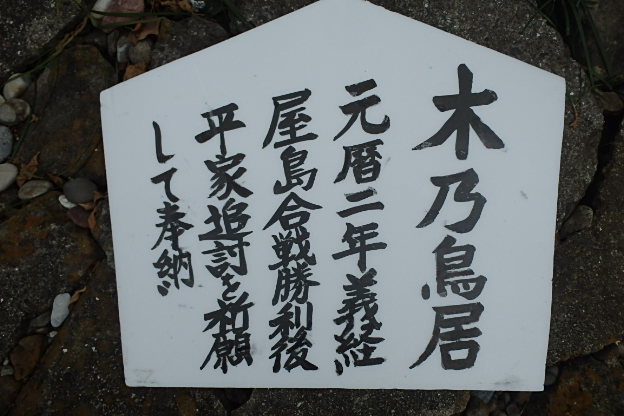 木乃鳥居
元暦二年義経
屋島合戦勝利後
平家追討を祈願
して奉納